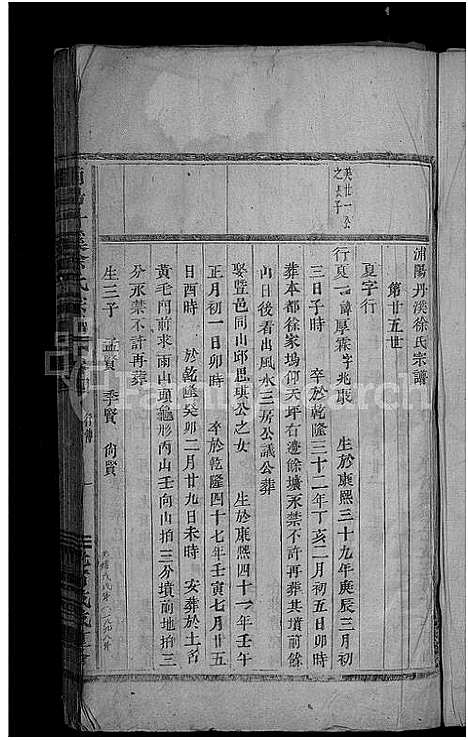 浦陽丹溪徐氏宗譜
第廿五世
夏字行
英廿一公
之長子
行夏一諱厚霖字兆殷 生於康熙三十九年庚辰三月初
三日子時 卒於乾隆三十二年丁亥二月初五日卯時
葬本都徐家塢仰天坪右邊餘壙永禁不許再葬其墳前餘
山日後看出風水三房公議公葬
娶暨邑同山邱思琪公之女 生於康熙四十一年壬午
正月初一日卯時 卒於乾隆四十七年壬寅七月廿五
日酉時 於乾隆癸卯二月廿九日未時 安葬於土名
黃毛門前求雨山頭龜形丙山壬向山拍三分墳前地拍三
分永禁不許再葬
生三子 孟賢 季賢 尚賢